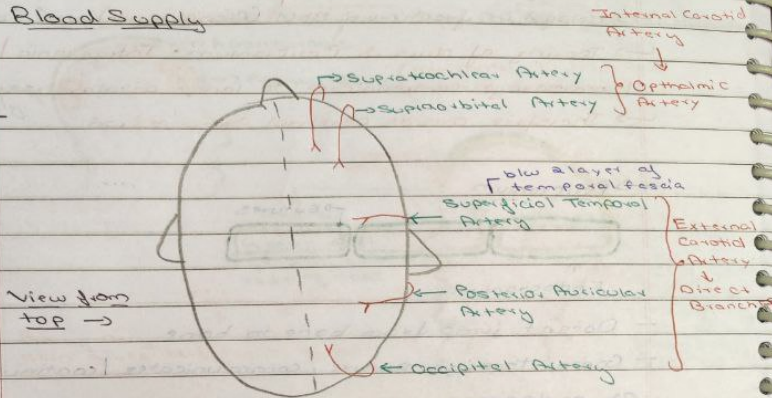 Blood Supply
Internal Carotid
Artery
↓
Supratrochlear Artery
Opthalmic
Artery
Supraorbital Artery
b/w 2 layer of
temporal fascia
Superficial Temporal
Artery
External
Carotid
Artery
↓
Direct
Branch
View from
top →
Posterior Auricular
Artery
Occipital Artery